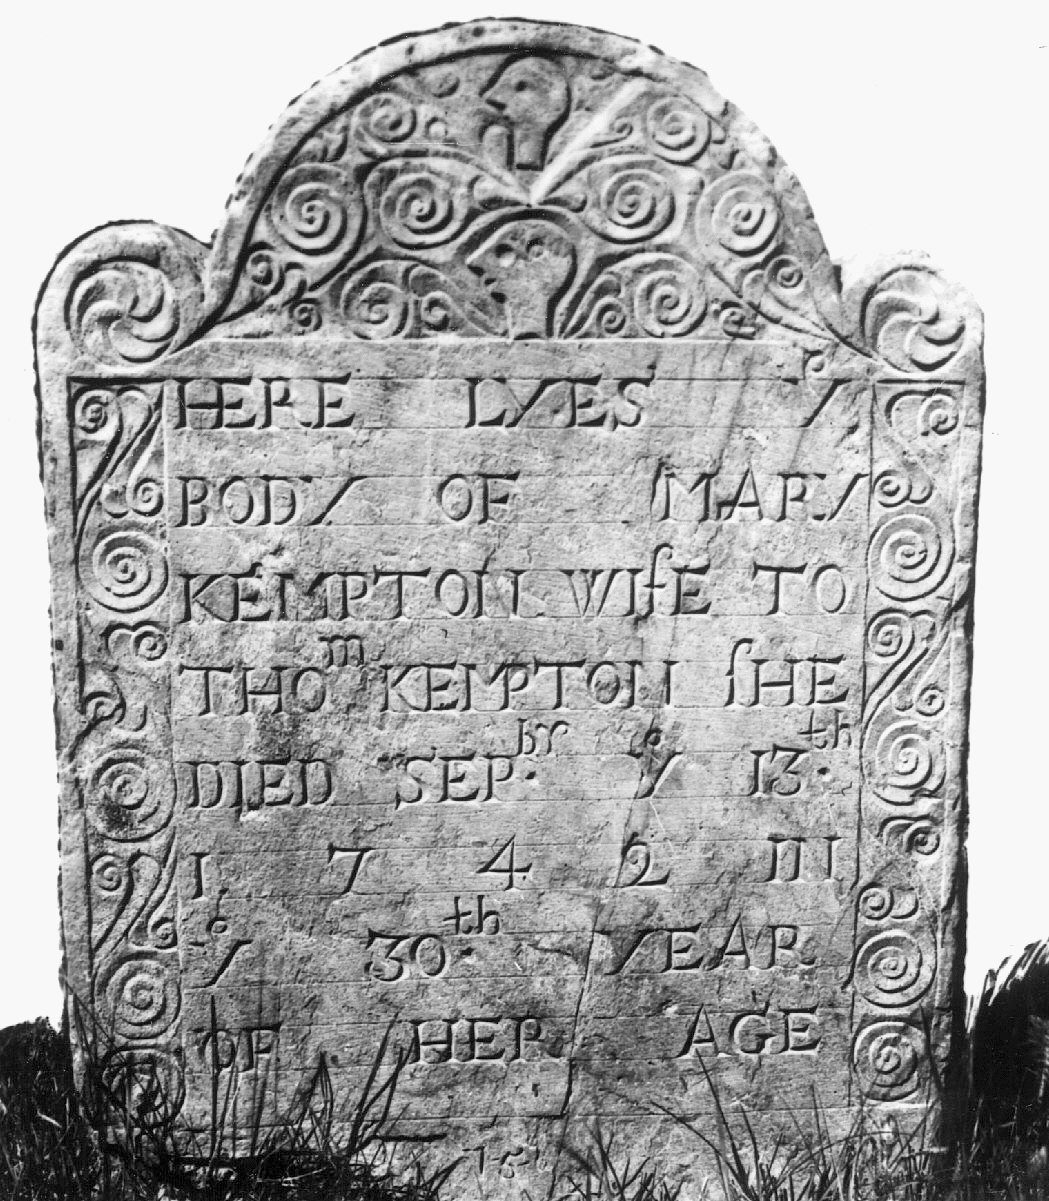 HERE LYES Yᵉ
BODY OF MARY
KEMPTON WIfE TO
THOᵐ KEMPTON ſHE
DIED SEPᵇʳ· Yᵉ 13·ᵗʰ
1 7 4 2 IN
Yᵉ 30·ᵗʰ YEAR
OF HER AGE